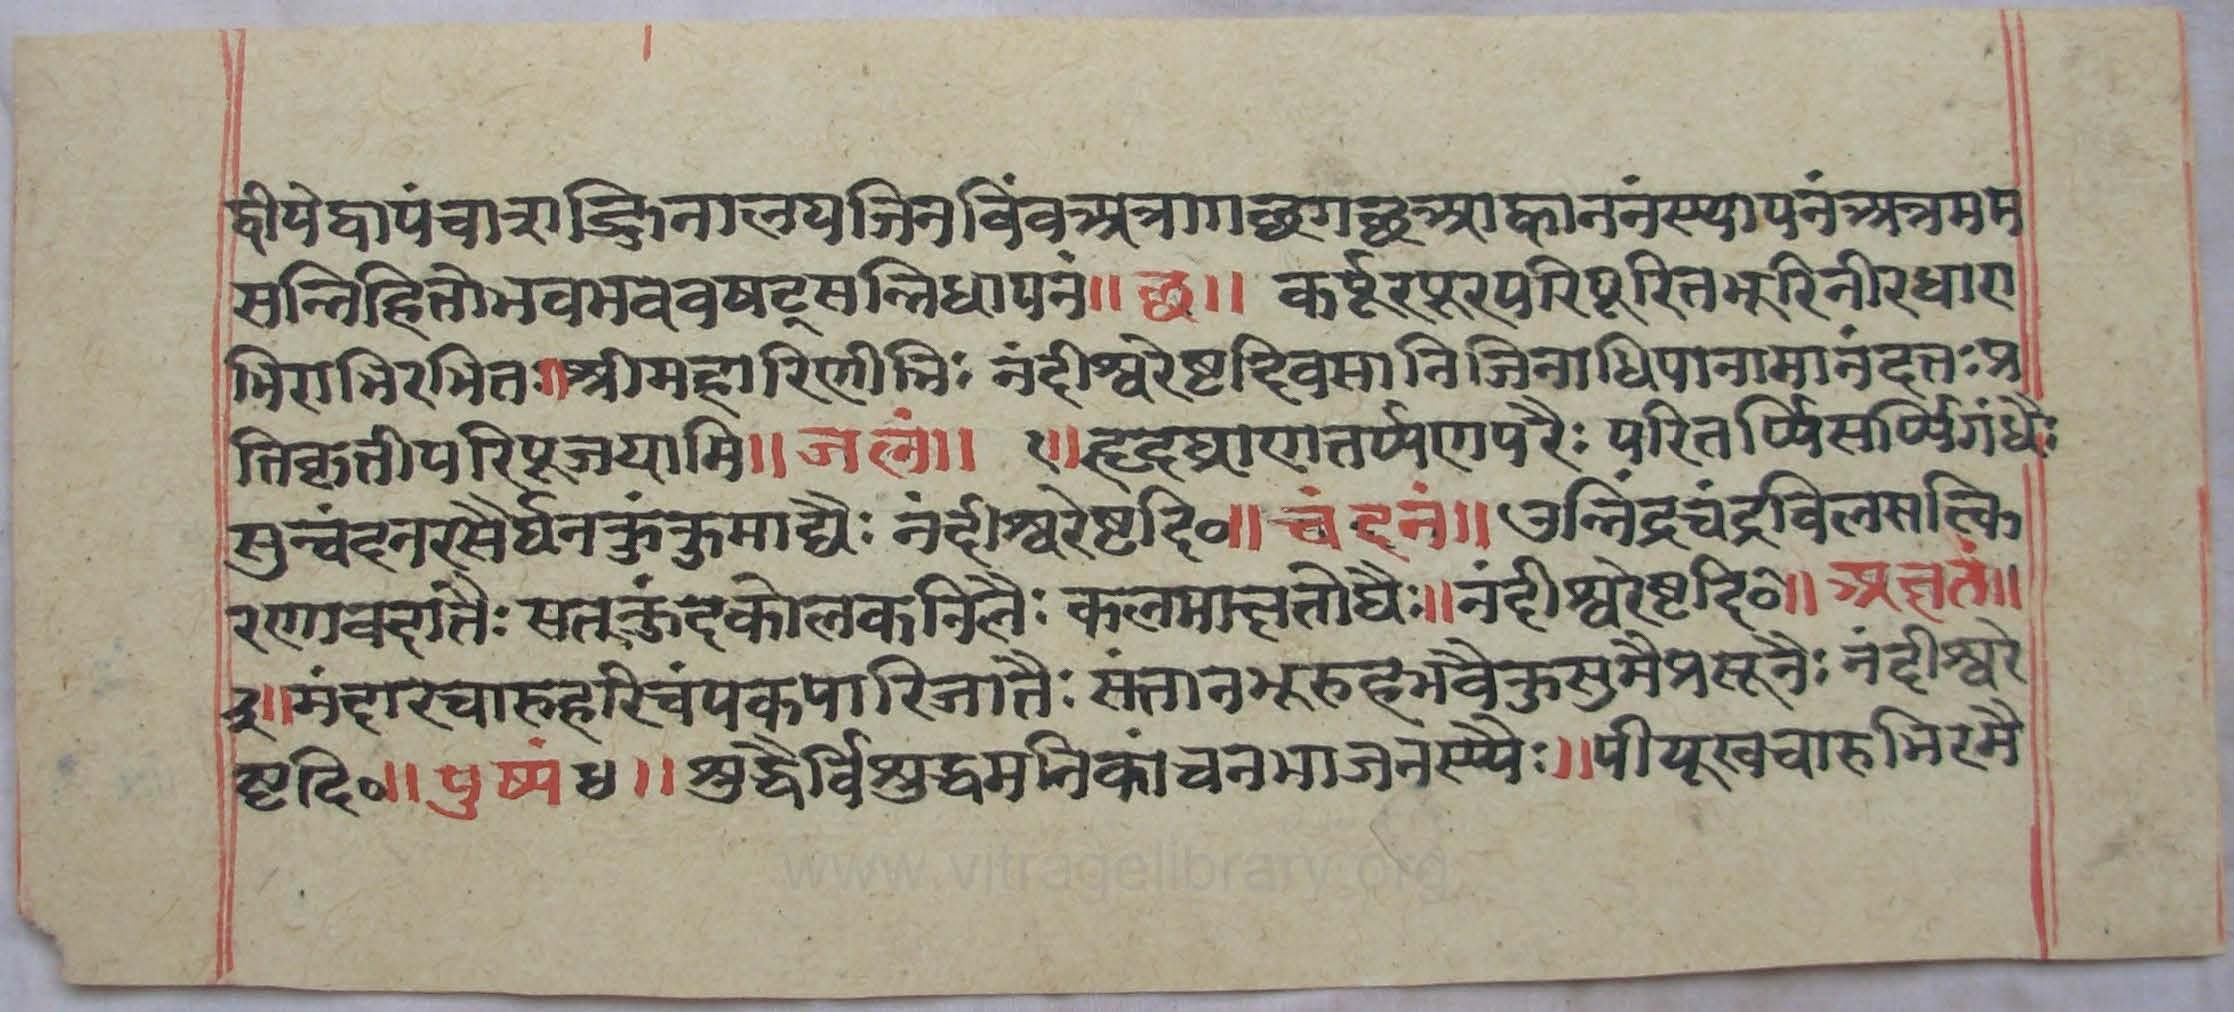 द्वीपेद्वापंचाशज्जिनालयजिनविंवअत्रागछगछआह्वाननंस्थापनंअत्रमम
सन्निहितोभवभववषट्सन्निधापनं॥छ॥ कर्पूरपूरपरिपूरितभूरिनीरधारा
भिराभिरभितः॥श्रीमहारिणीभिः नंदीश्वरेष्टदिवसानिजिनाधिपानामानंदतःप्र
तिकृतीपरिपूजयामि॥जलं॥ १॥हृदघ्राणतर्प्पणपरैः परितर्प्पिसर्प्पिगंधैः
सुचंदनरसैर्घनकुंकुमाद्यैः नंदीश्वरेष्टदि०॥चंदनं॥उन्निंद्रचंद्रविलसत्कि
रणावदातैः सत्कुंदकोलकनिलैः कलमाक्षतोघैः॥नंदीश्वरेष्टदि०॥अक्षतं॥
३॥मंदारचारुहरिचंपकपारिजातैः संतानभूरुहभवैकुसुमैप्रसूनैः नंदीश्वरे
ष्टदि०॥पुष्पं४॥शुद्धैर्विशुद्धमनिकांचनभाजनस्थैः॥पीयूखचारुभिरमै
www.vitragelibrary.org